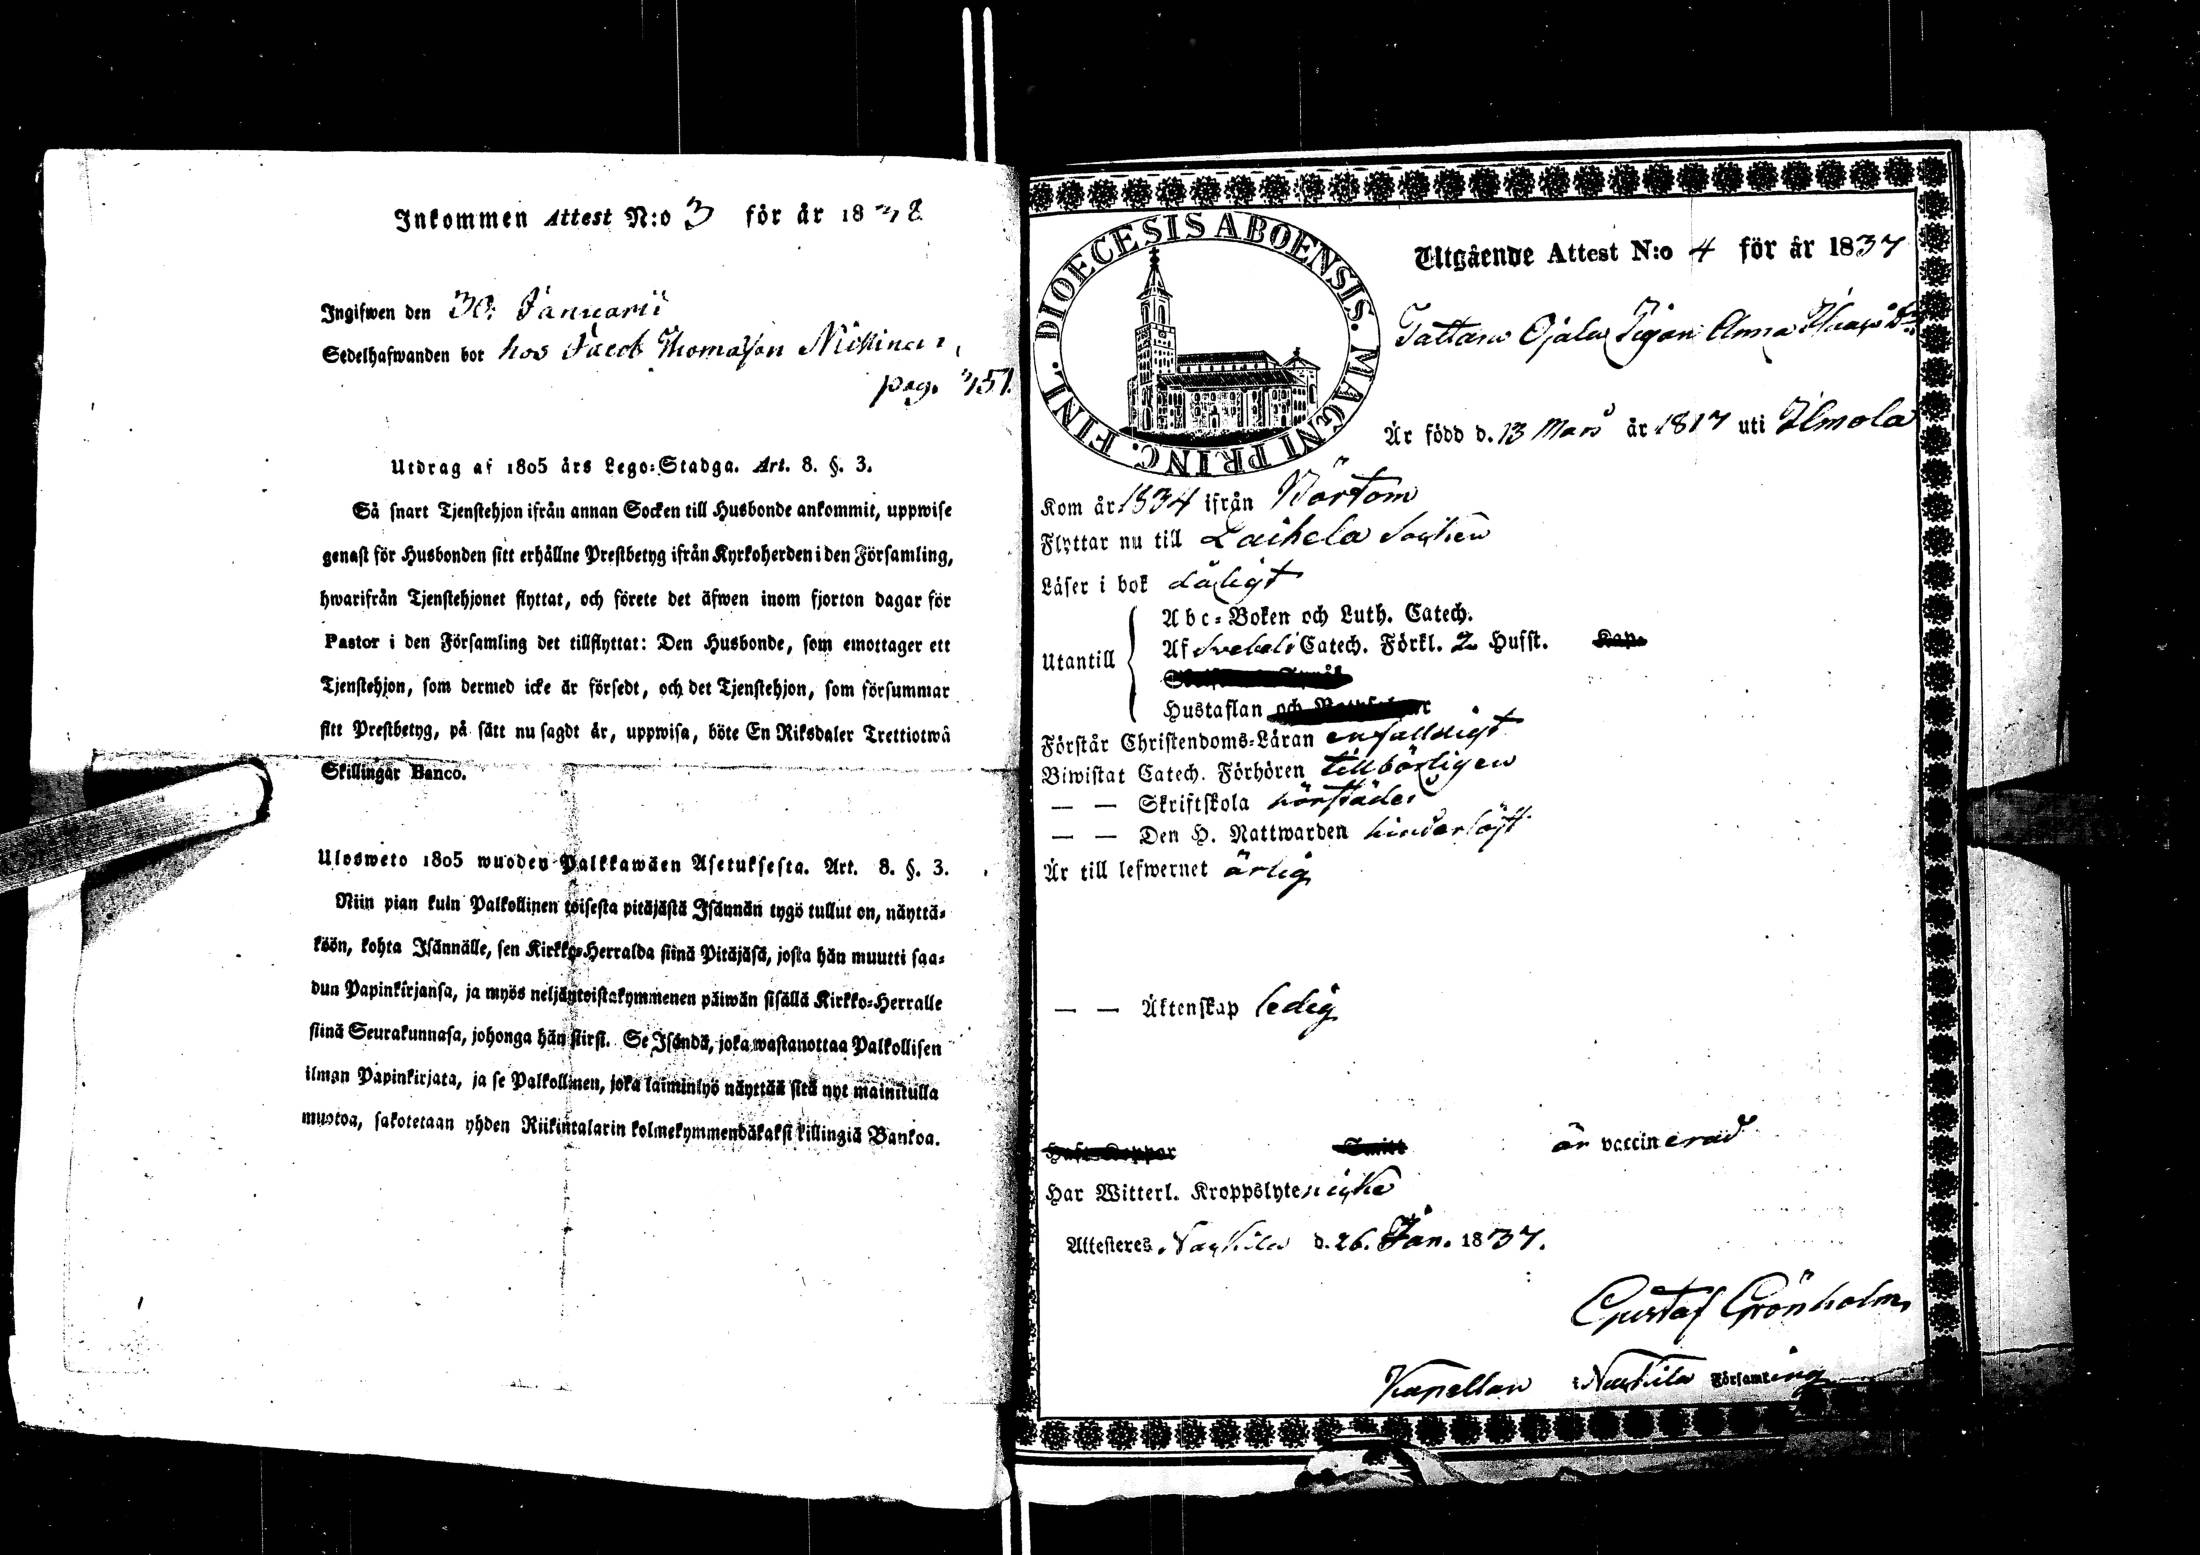 Inkommen Attest N:o 3 för år 18
Ingifwen den 30 Januarii
Sedelhafwanden bor hos Jacob Thomasson
pag. 451
Utdrag af 1805 års Lego-Stadga. Art. 8. §. 3.
Så snart Tjenstehjon ifrån annan Socken till Husbonde ankommit, uppwise
genast för Husbonden sitt erhållne Prestbetyg ifrån Kyrkoherden i den Församling,
hwarifrån Tjenstehjonet flyttat, och förete det äfwen inom fjorton dagar för
Pastor i den Församling det tillflyttat: Den Husbonde, som emottager ett
Tjenstehjon, som dermed icke är försedt, och det Tjenstehjon, som försummar
sitt Prestbetyg, på sätt nu sagdt är, uppwisa, böte En Riksdaler Trettiotwå
Skillingar Banco.
Ulosweto 1805 wuoden Palkkawäen Asetuksesta. Art. 8. §. 3.
Niin pian kuin Palkollinen toisesta pitäjästä Isännän tygö tullut on, näyttä-
köön, kohta Isännälle, sen Kirkko-Herralda siinä Pitäjäsä, josta hän muutti saa-
dun Papinkirjansa, ja myös neljäntoistakymmenen päiwän sisällä Kirkko-Herralle
siinä Seurakunnasa, johonga hän siirst. Se Isändä, joka wastanottaa Palkollisen
ilman Papinkirjata, ja se Palkollinen, joka laiminlyö näyttää sitä nyt mainitulla
muotoa, sakotetaan yhden Riikintalarin kolmekymmendäkaksi killingiä Bankoa.
DIOECESIS ABOENSIS. MAGNI PRINC. FINL.
Utgående Attest N:o 4 för år 1837
Ojala Pigan Anna
Är född d. 13 Mars år 1817 uti Ilmola
Kom år 1834 ifrån Pörtom
Flyttar nu till Laihela Socken
Läser i bok dåligt
Utantill
Abc-Boken och Luth. Catech.
Af Svebeli Catech. Förkl. 2 Husst. Kap.
Hustaflan och
Förstår Christendoms-Läran enfalldigt
Biwistat Catech. Förhören tillbörligen
— — Skriftskola
— — Den H. Nattwarden hinderlöst
Är till lefwernet ärlig
— — Äktenskap ledig
är vaccinerad
Har Witterl. Kroppslyte icke
Attesteres d. 26. Jan. 1837.
Gustaf Grönholm
Kapellan Församling